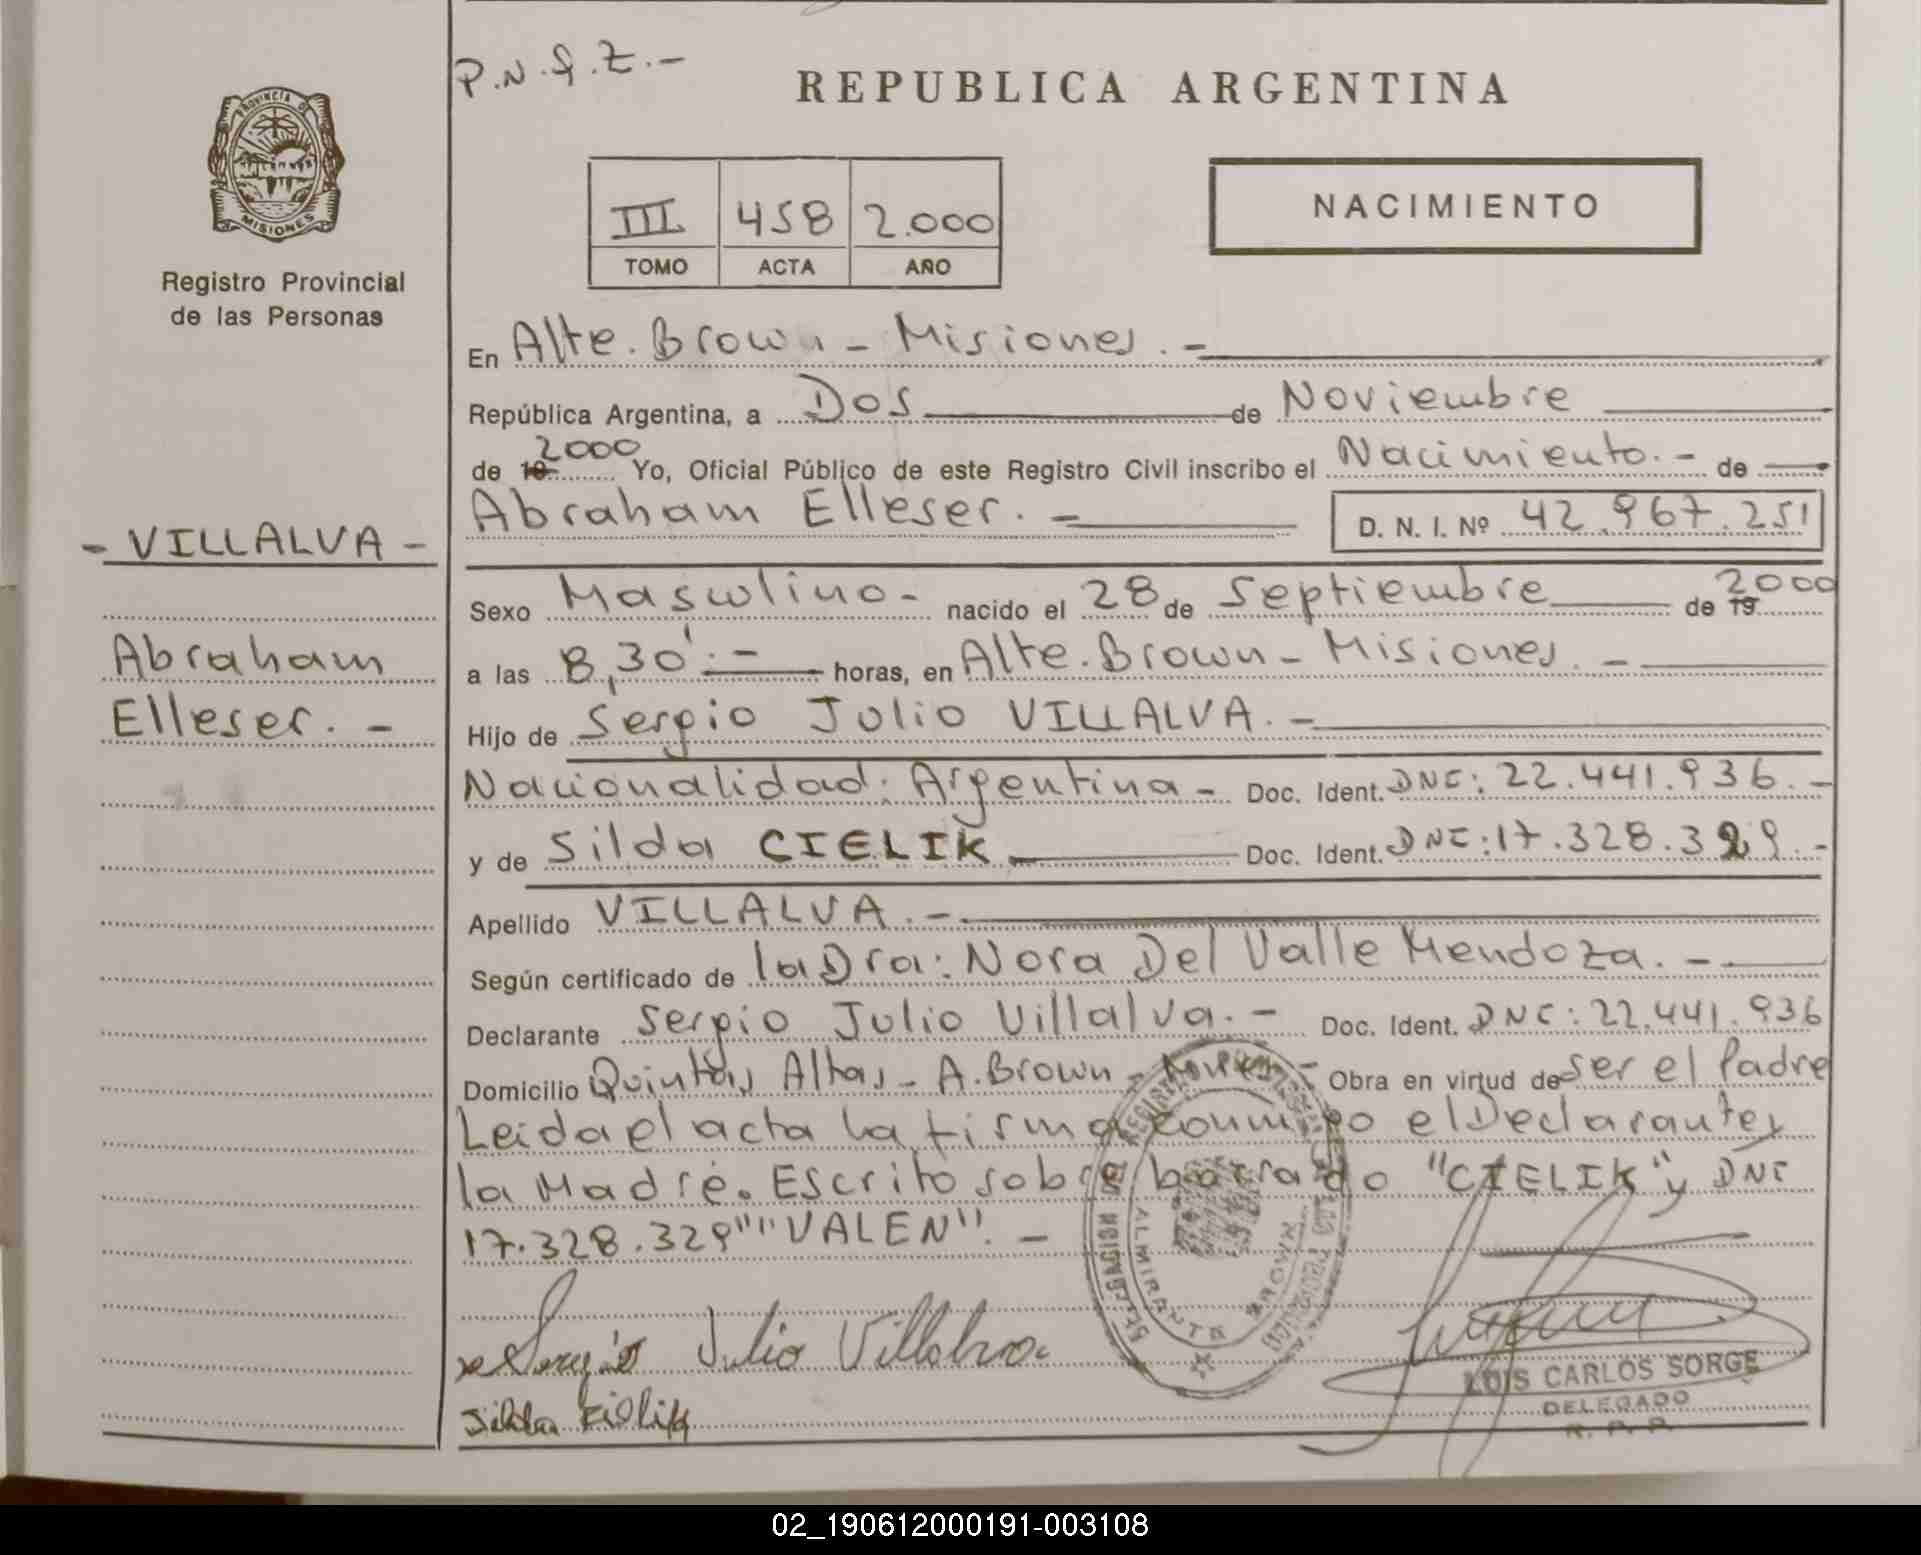 P.N.Q.Z.-
REPUBLICA ARGENTINA
PROVINCIA DE
MISIONES
Registro Provincial
de las Personas
III 458 2.000
TOMO ACTA AÑO
NACIMIENTO
En Alte. Brown - Misiones.-
República Argentina, a Dos de Noviembre
de 19 2000 Yo, Oficial Público de este Registro Civil inscribo el Nacimiento.- de
Abraham Elleser.- D. N. I. Nº 42.967.251
- VILLALVA -
Abraham
Elleser.-
Sexo Masculino- nacido el 28 de Septiembre de 19 2000
a las 8,30'.- horas, en Alte. Brown - Misiones.-
Hijo de Sergio Julio VILLALVA.-
Nacionalidad: Argentina- Doc. Ident. DNI: 22.441.936.-
y de Silda CIELIK Doc. Ident. DNI: 17.328.329.-
Apellido VILLALVA.-
Según certificado de la Dra: Nora Del Valle Mendoza.-
Declarante Sergio Julio Villalva.- Doc. Ident. DNI: 22.441.936
Domicilio Quintas Altas - A. Brown - Obra en virtud de ser el Padre
Leida el acta la firma conmigo el Declarante y
la Madre. Escrito sobre borrado "CIELIK" y DNI
17.328.329" "VALEN".-
Sergio Julio Villalva.
Silda Cielik
ALMIRANTE BROWN
LUIS CARLOS SORGE
DELEGADO
R. P. P.
02_190612000191-003108